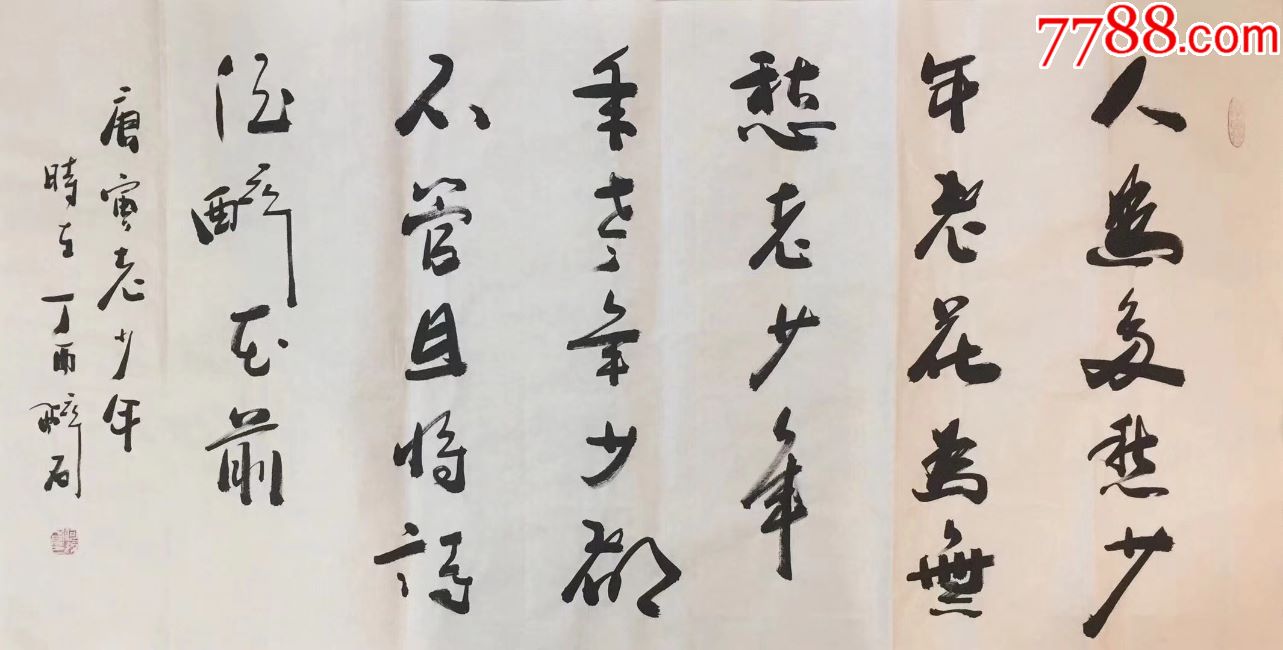 7788.com
人為多愁少
年老花為無
愁老少年
年老年少都
不管且將詩
酒醉花前
唐寅老少年
時在丁酉醉石